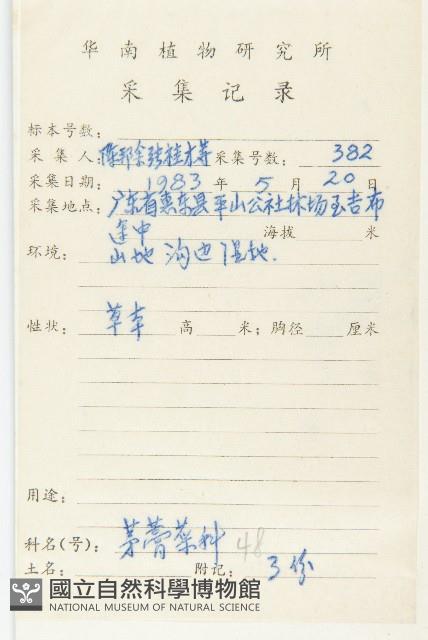 华南植物研究所
采集记录
标本号数：
采集人：陈邦余张桂才等 采集号数：382
采集日期：1983年5月20日
采集地点：广东省惠东县平山公社林场至吉布
途中 海拔 米
环境：山地 沟边湿地.
性状：草本 高 米；胸径 厘米
用途：
科名(号)：茅膏菜科 48
土名： 附记：3份
國立自然科學博物館
NATIONAL MUSEUM OF NATURAL SCIENCE